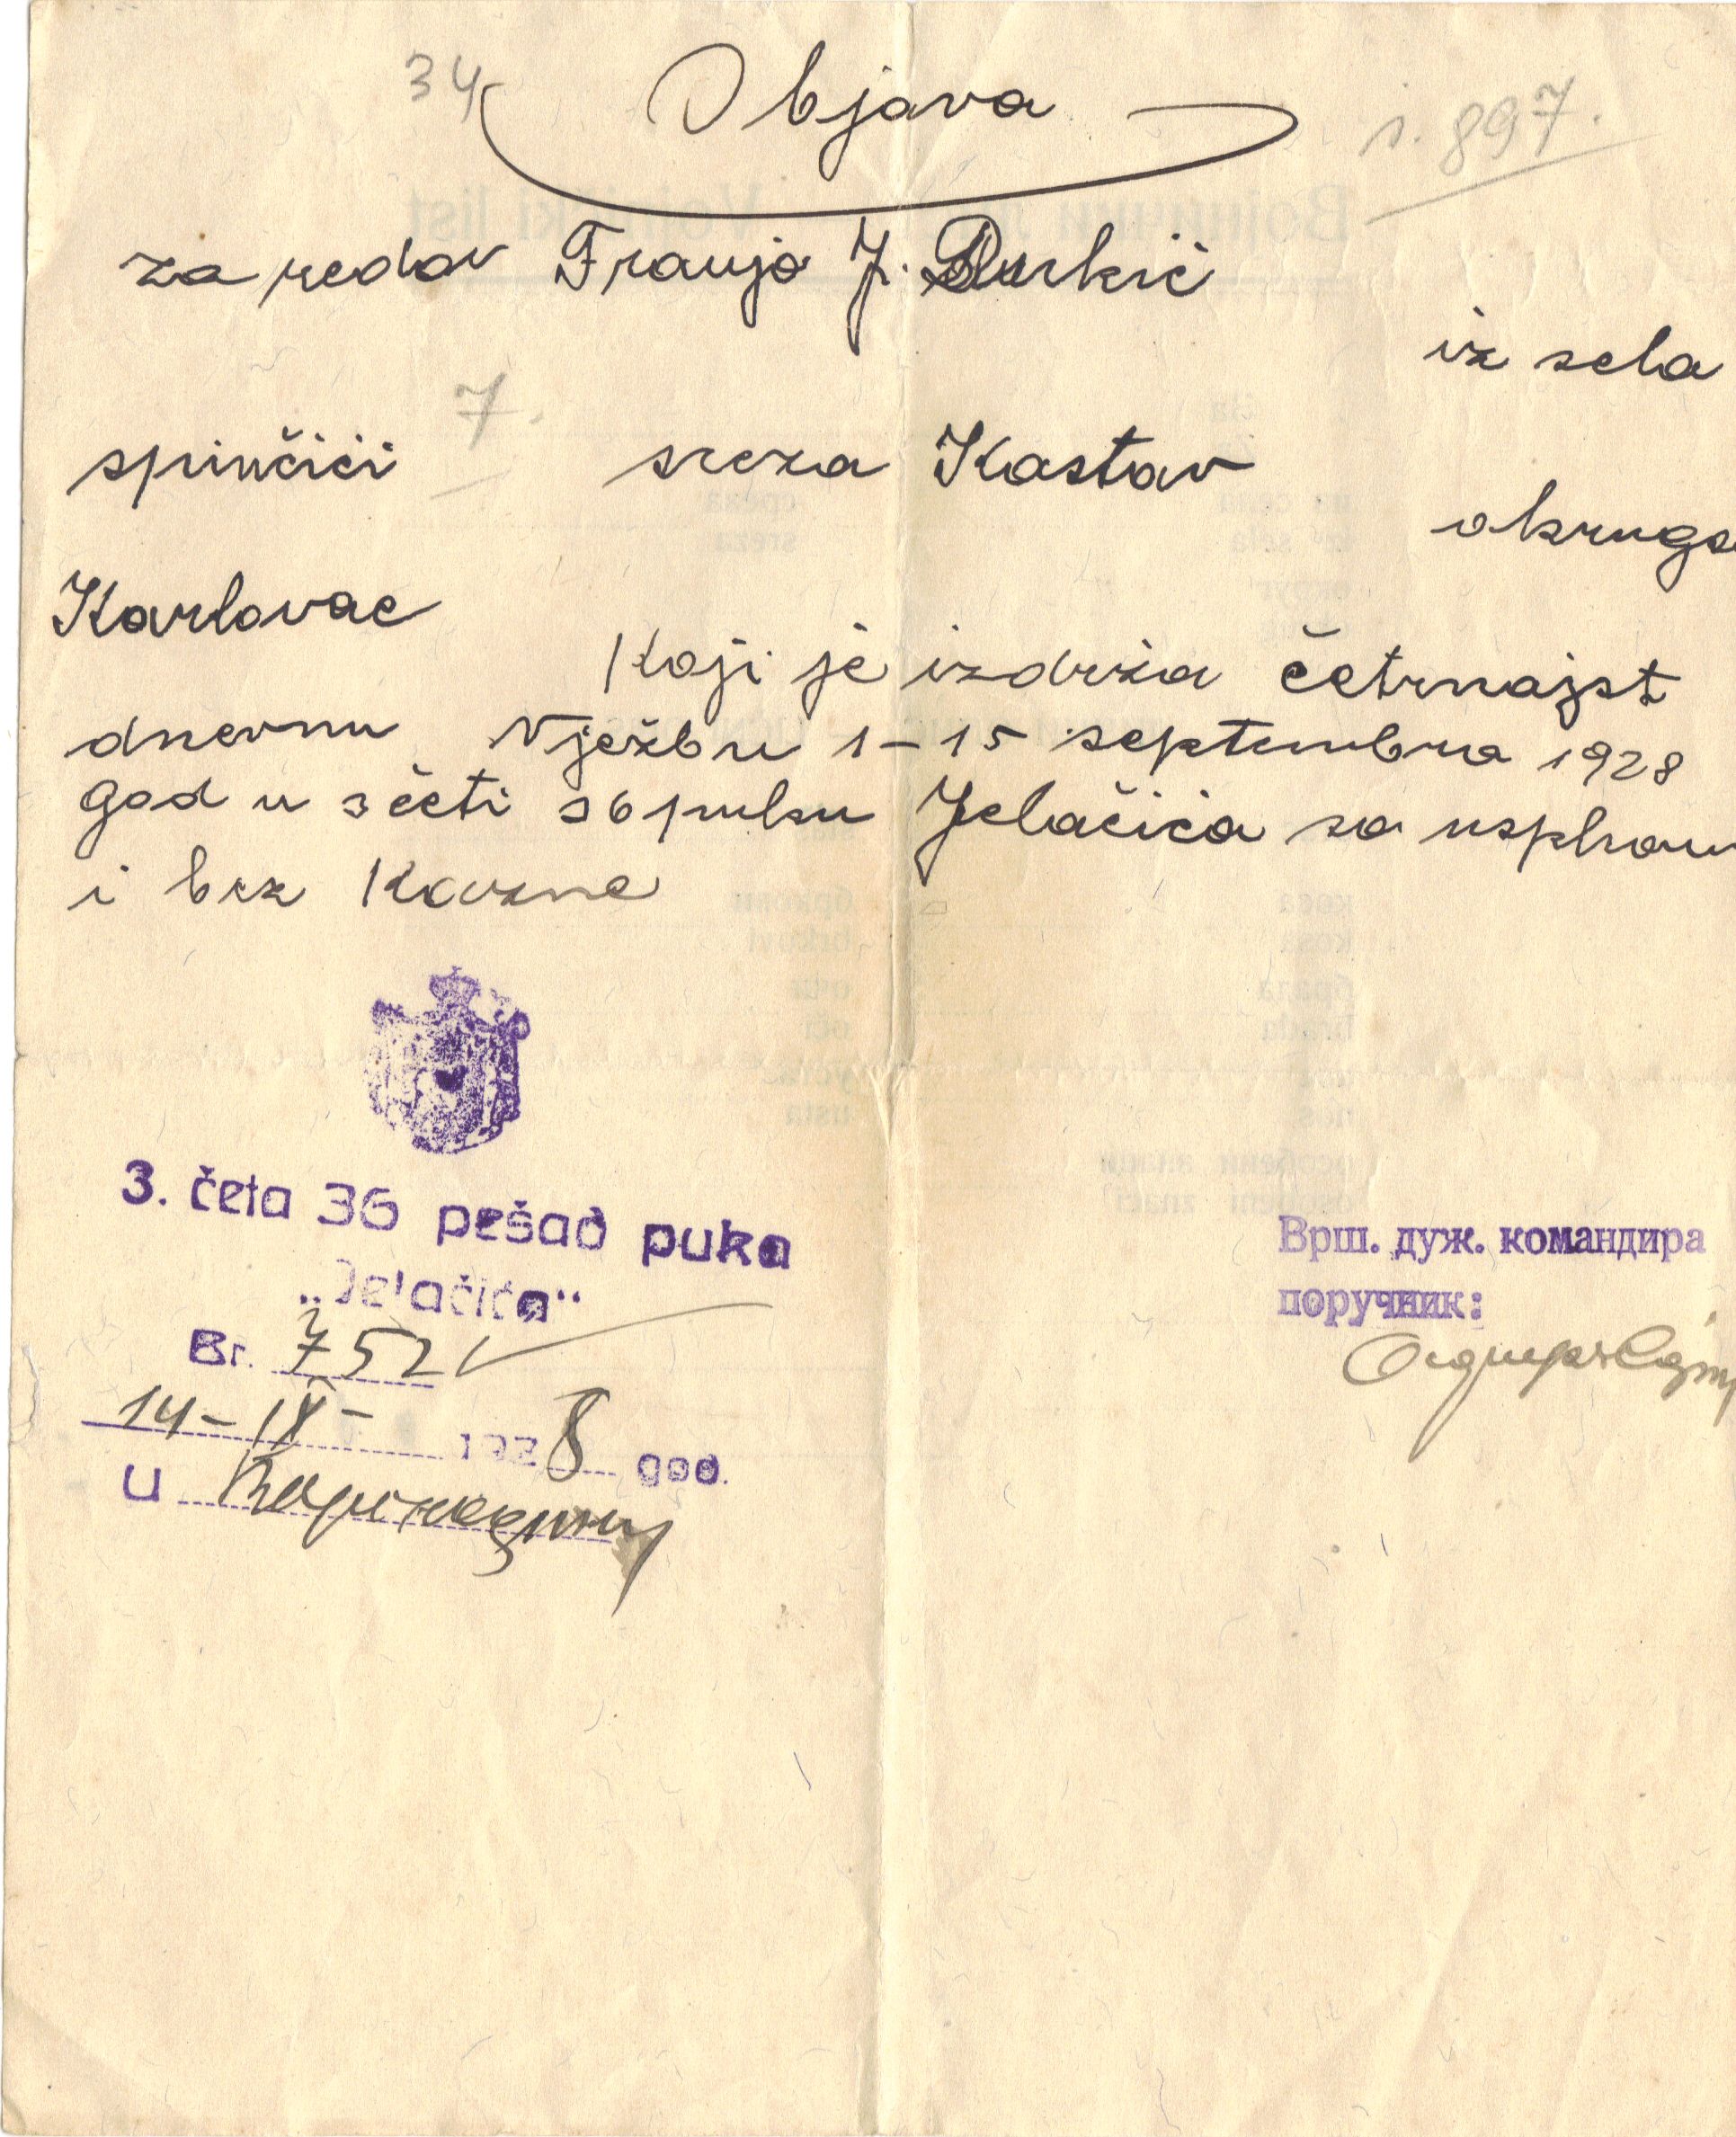 34
Objava
1. 897.
za redov Franjo J. Durkić
iz sela
spinčići 7. sreza Kastav
okruga
Karlovac
Koji je izdrža četrnajst
dnevnu Vježbu 1-15 septembra 1928
God u 3 četi 36 puku Jelačića sa uspham
i bez Kazne
3. četa 36 pešad puka
„Jelačića"
Br. 7521
14-IX- 1928 god.
u Вараждину
Врш. дуж. командира
поручник: